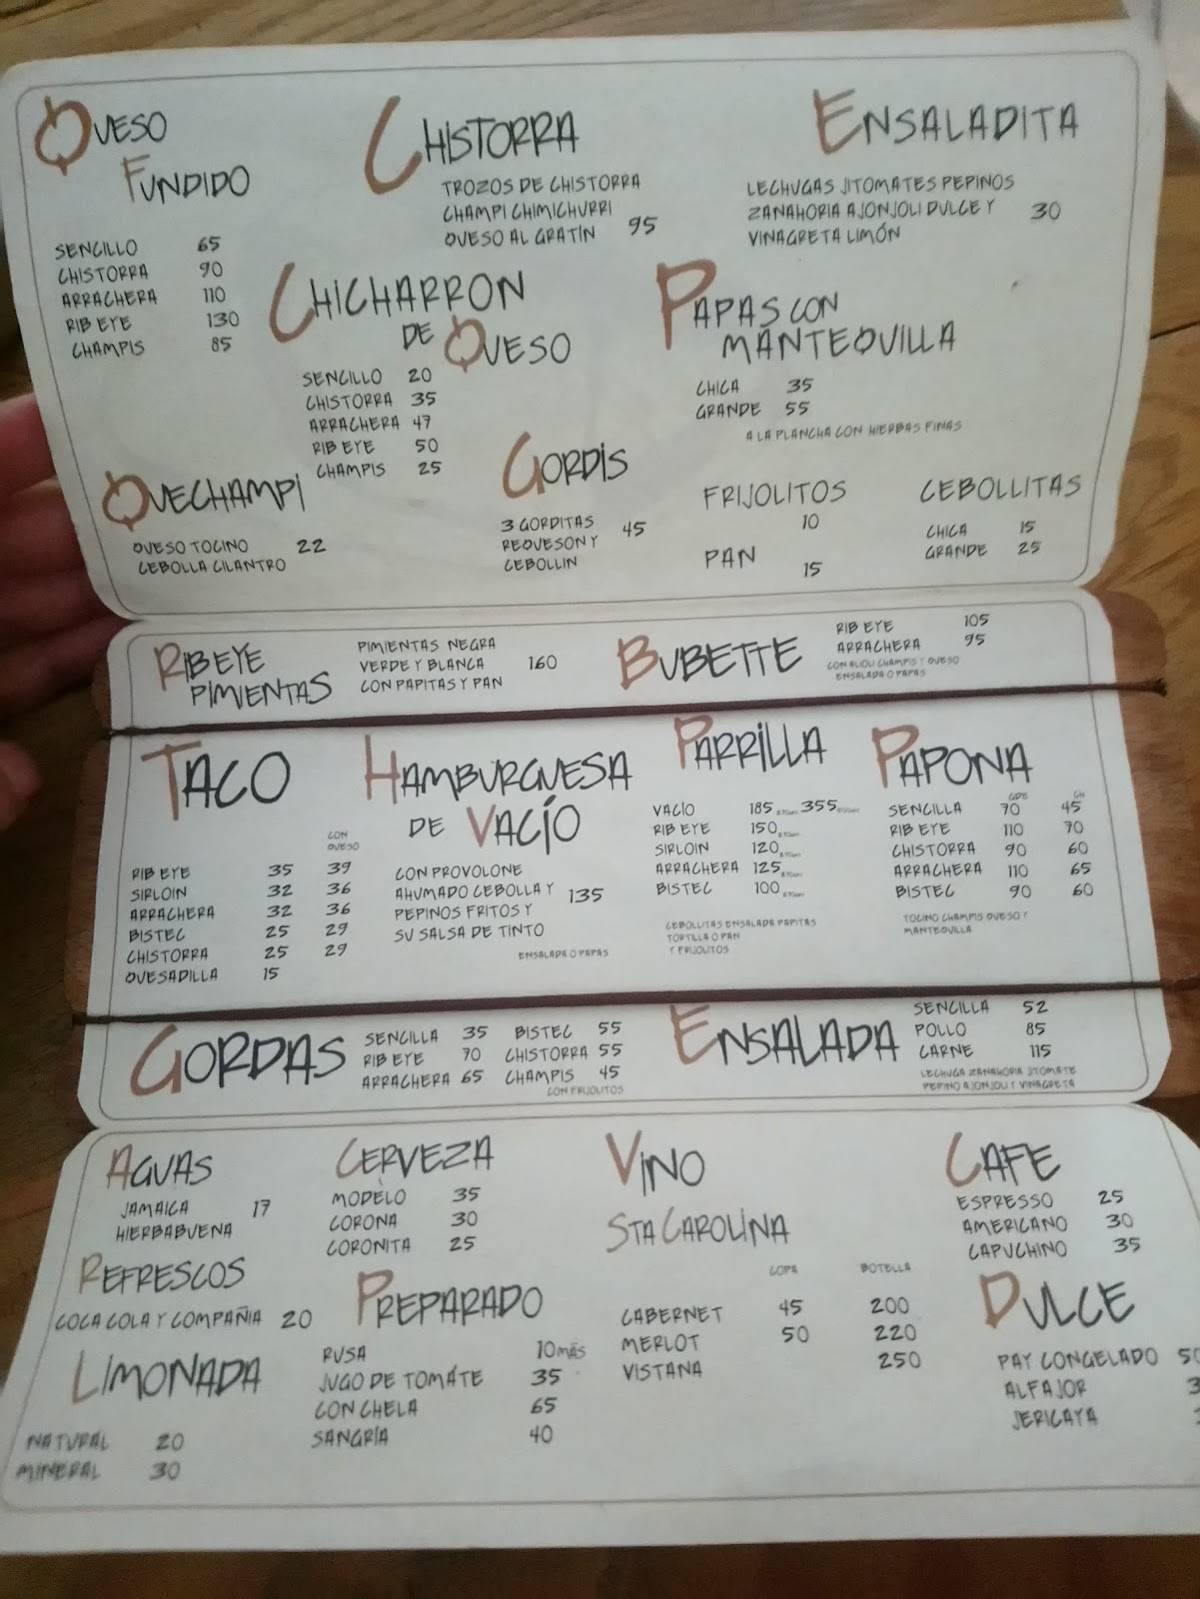 QUESO
FUNDIDO
SENCILLO 65
CHISTORRA 90
ARRACHERA 110
RIB EYE 130
CHAMPIS 85
CHISTORRA
TROZOS DE CHISTORRA
CHAMPI CHIMICHURRI
QUESO AL GRATÍN 95
ENSALADITA
LECHUGAS JITOMATES PEPINOS
ZANAHORIA AJONJOLI DULCE Y 30
VINAGRETA LIMÓN
CHICHARRON
DE QUESO
SENCILLO 20
CHISTORRA 35
ARRACHERA 47
RIB EYE 50
CHAMPIS 25
PAPAS CON
MANTEQUILLA
CHICA 35
GRANDE 55
A LA PLANCHA CON HIERBAS FINAS
QUECHAMPI
QUESO TOCINO 22
CEBOLLA CILANTRO
GORDIS
3 GORDITAS 45
REQUESON Y
CEBOLLIN
FRIJOLITOS
10
PAN
15
CEBOLLITAS
CHICA 15
GRANDE 25
RIB EYE
PIMIENTAS
PIMIENTAS NEGRA
VERDE Y BLANCA 160
CON PAPITAS Y PAN
BUBETTE
RIB EYE 105
ARRACHERA 95
CON ALIOLI CHAMPIS Y QUESO
ENSALADA O PAPAS
TACO
CON
QUESO
RIB EYE 35 39
SIRLOIN 32 36
ARRACHERA 32 36
BISTEC 25 29
CHISTORRA 25 29
QUESADILLA 15
HAMBURGUESA
DE VACÍO
CON PROVOLONE
AHUMADO CEBOLLA Y 135
PEPINOS FRITOS Y
SU SALSA DE TINTO
ENSALADA O PAPAS
PARRILLA
VACÍO 185 355
RIB EYE 150
SIRLOIN 120
ARRACHERA 125
BISTEC 100
CEBOLLITAS ENSALADA PAPITAS
TORTILLA O PAN
Y FRIJOLITOS
PAPONA
GDE CH
SENCILLA 70 45
RIB EYE 110 70
CHISTORRA 90 60
ARRACHERA 110 65
BISTEC 90 60
TOCINO CHAMPIS QUESO Y
MANTEQUILLA
GORDAS
SENCILLA 35 BISTEC 55
RIB EYE 70 CHISTORRA 55
ARRACHERA 65 CHAMPIS 45
CON FRIJOLITOS
ENSALADA
SENCILLA 52
POLLO 85
CARNE 115
LECHUGA ZANAHORIA JITOMATE
PEPINO AJONJOLI Y VINAGRETA
AGUAS
JAMAICA 17
HIERBABUENA
REFRESCOS
COCA COLA Y COMPAÑIA 20
LIMONADA
NATURAL 20
MINERAL 30
CERVEZA
MODELO 35
CORONA 30
CORONITA 25
PREPARADO
RUSA 10 más
JUGO DE TOMATE 35
CON CHELA 65
SANGRÍA 40
VINO
STA CAROLINA
COPA BOTELLA
CABERNET 45 200
MERLOT 50 220
VISTANA 250
CAFE
ESPRESSO 25
AMERICANO 30
CAPUCHINO 35
DULCE
PAY CONGELADO 50
ALFAJOR
JERICAYA